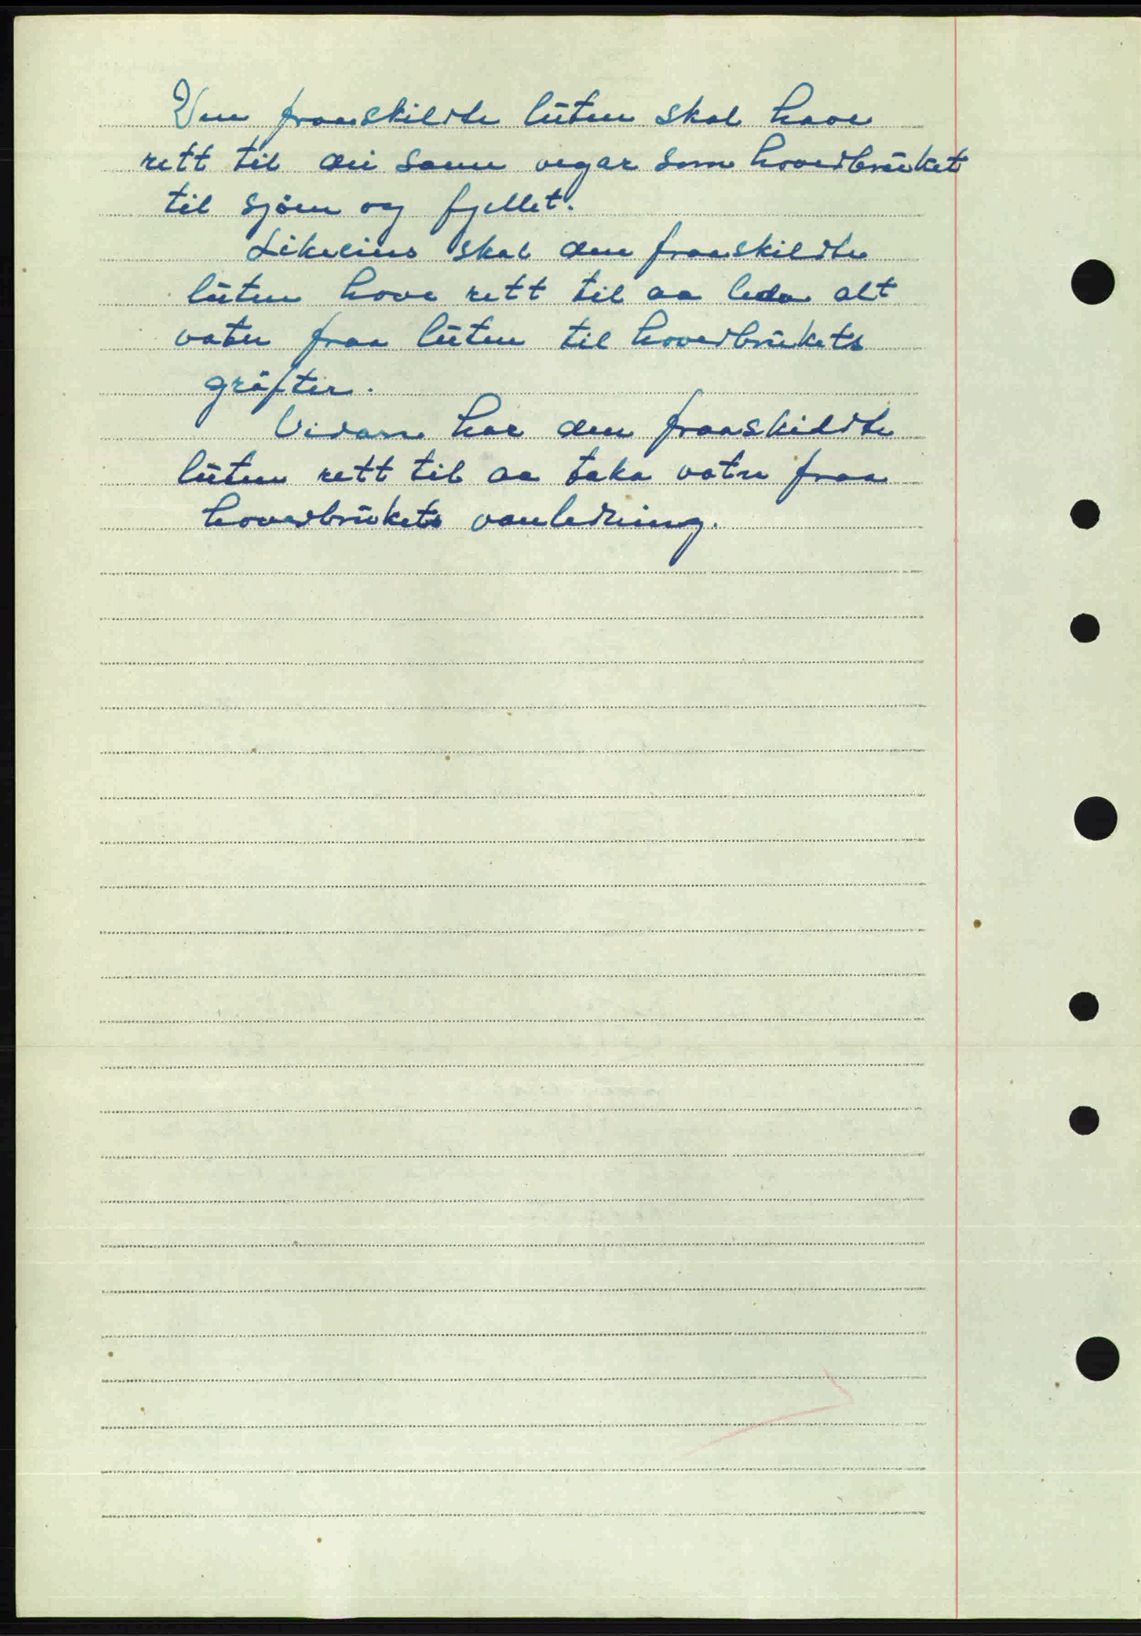 Den fraaskildte luten skal have
rett til dei same vegar som hovedbruket
til sjøen og fjellet.
Likeeins skal den fraaskildte
luten have rett til aa leda alt
vatn fraa luten til hovedbrukets
grøfter.
Vidare har den fraaskildte
luten rett til aa taka vatn fraa
hovedbrukets vanledning.